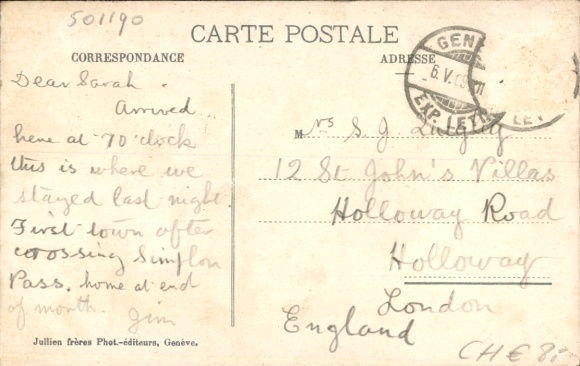 501190
CARTE POSTALE
CORRESPONDANCE
ADRESSE
Dear Sarah.
Arrived
here at 7 O'clock
this is where we
stayed last night
First town after
crossing Simplon
Pass. home at end
of month.
Jim
GENE
6.V.
EXP. LETT
LET
Mrs S. J.
12 St John's Villas
Holloway Road
Holloway
London
England
Jullien frères Phot.-éditeurs, Genève.
CH € 8